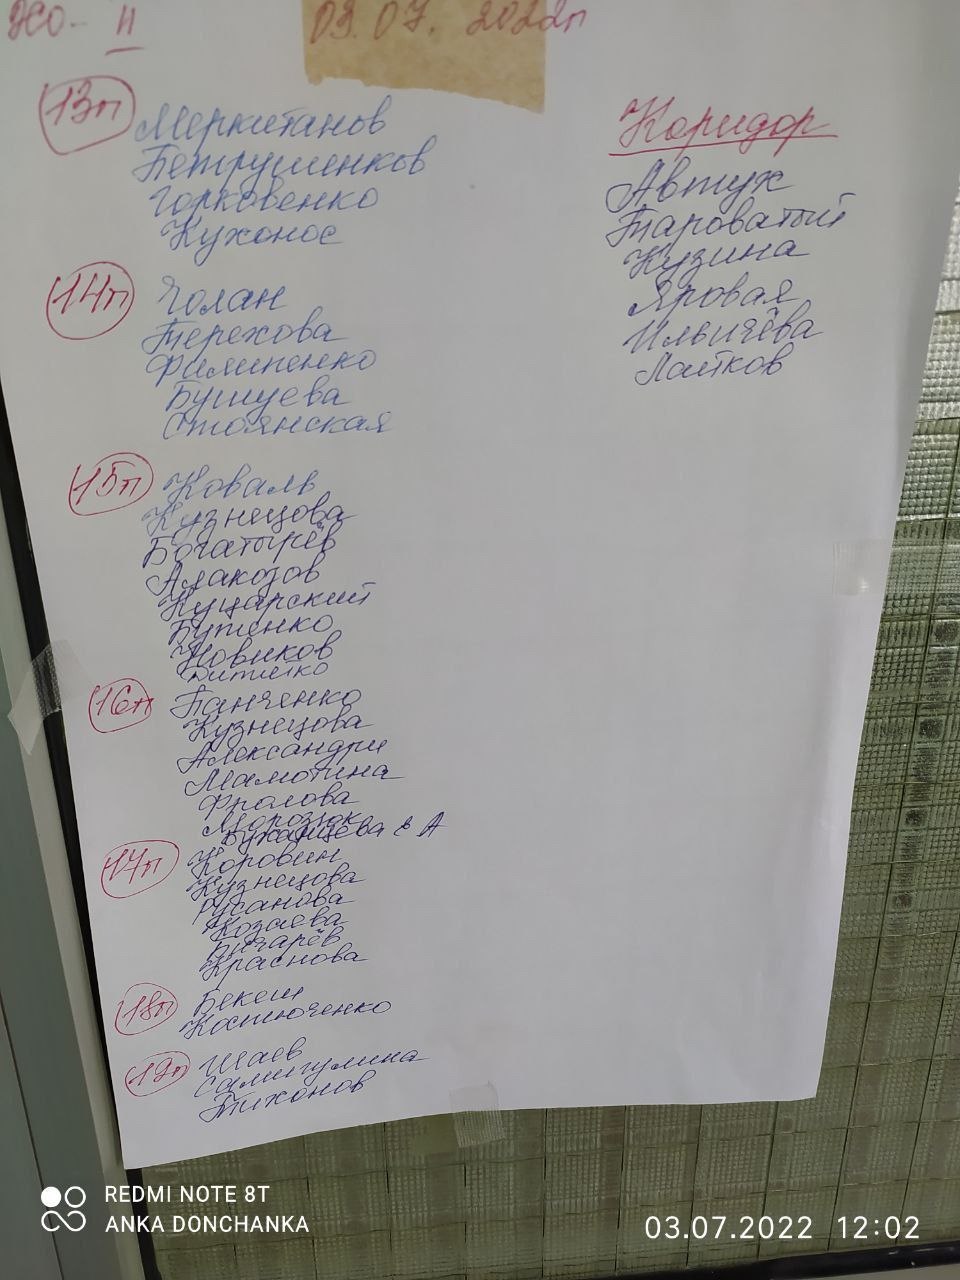 ХО- II
03.07.2022г
13п
Меркитанов
Петрушенков
Горковенко
Кухонос
14п
Чолан
Терехова
Филипенко
Бушуева
Стоянская
15п
Коваль
Кузнецова
Богатырёв
Алакозов
Куцарский
Бутенко
Новиков
16п
Панченко
Кузнецова
Александри
Мамотина
Фролова
Морозюк
17п
Коровин
Кузнецова
Русанова
Козаева
Бигарёв
Краснова
18п
Бекеш
Костюченко
19п
Шаев
Самигулина
Тихонов
Коридор
Автух
Тароватый
Кузина
Яровая
Ильичёва
Латков
REDMI NOTE 8T
ANKA DONCHANKA
03.07.2022 12:02